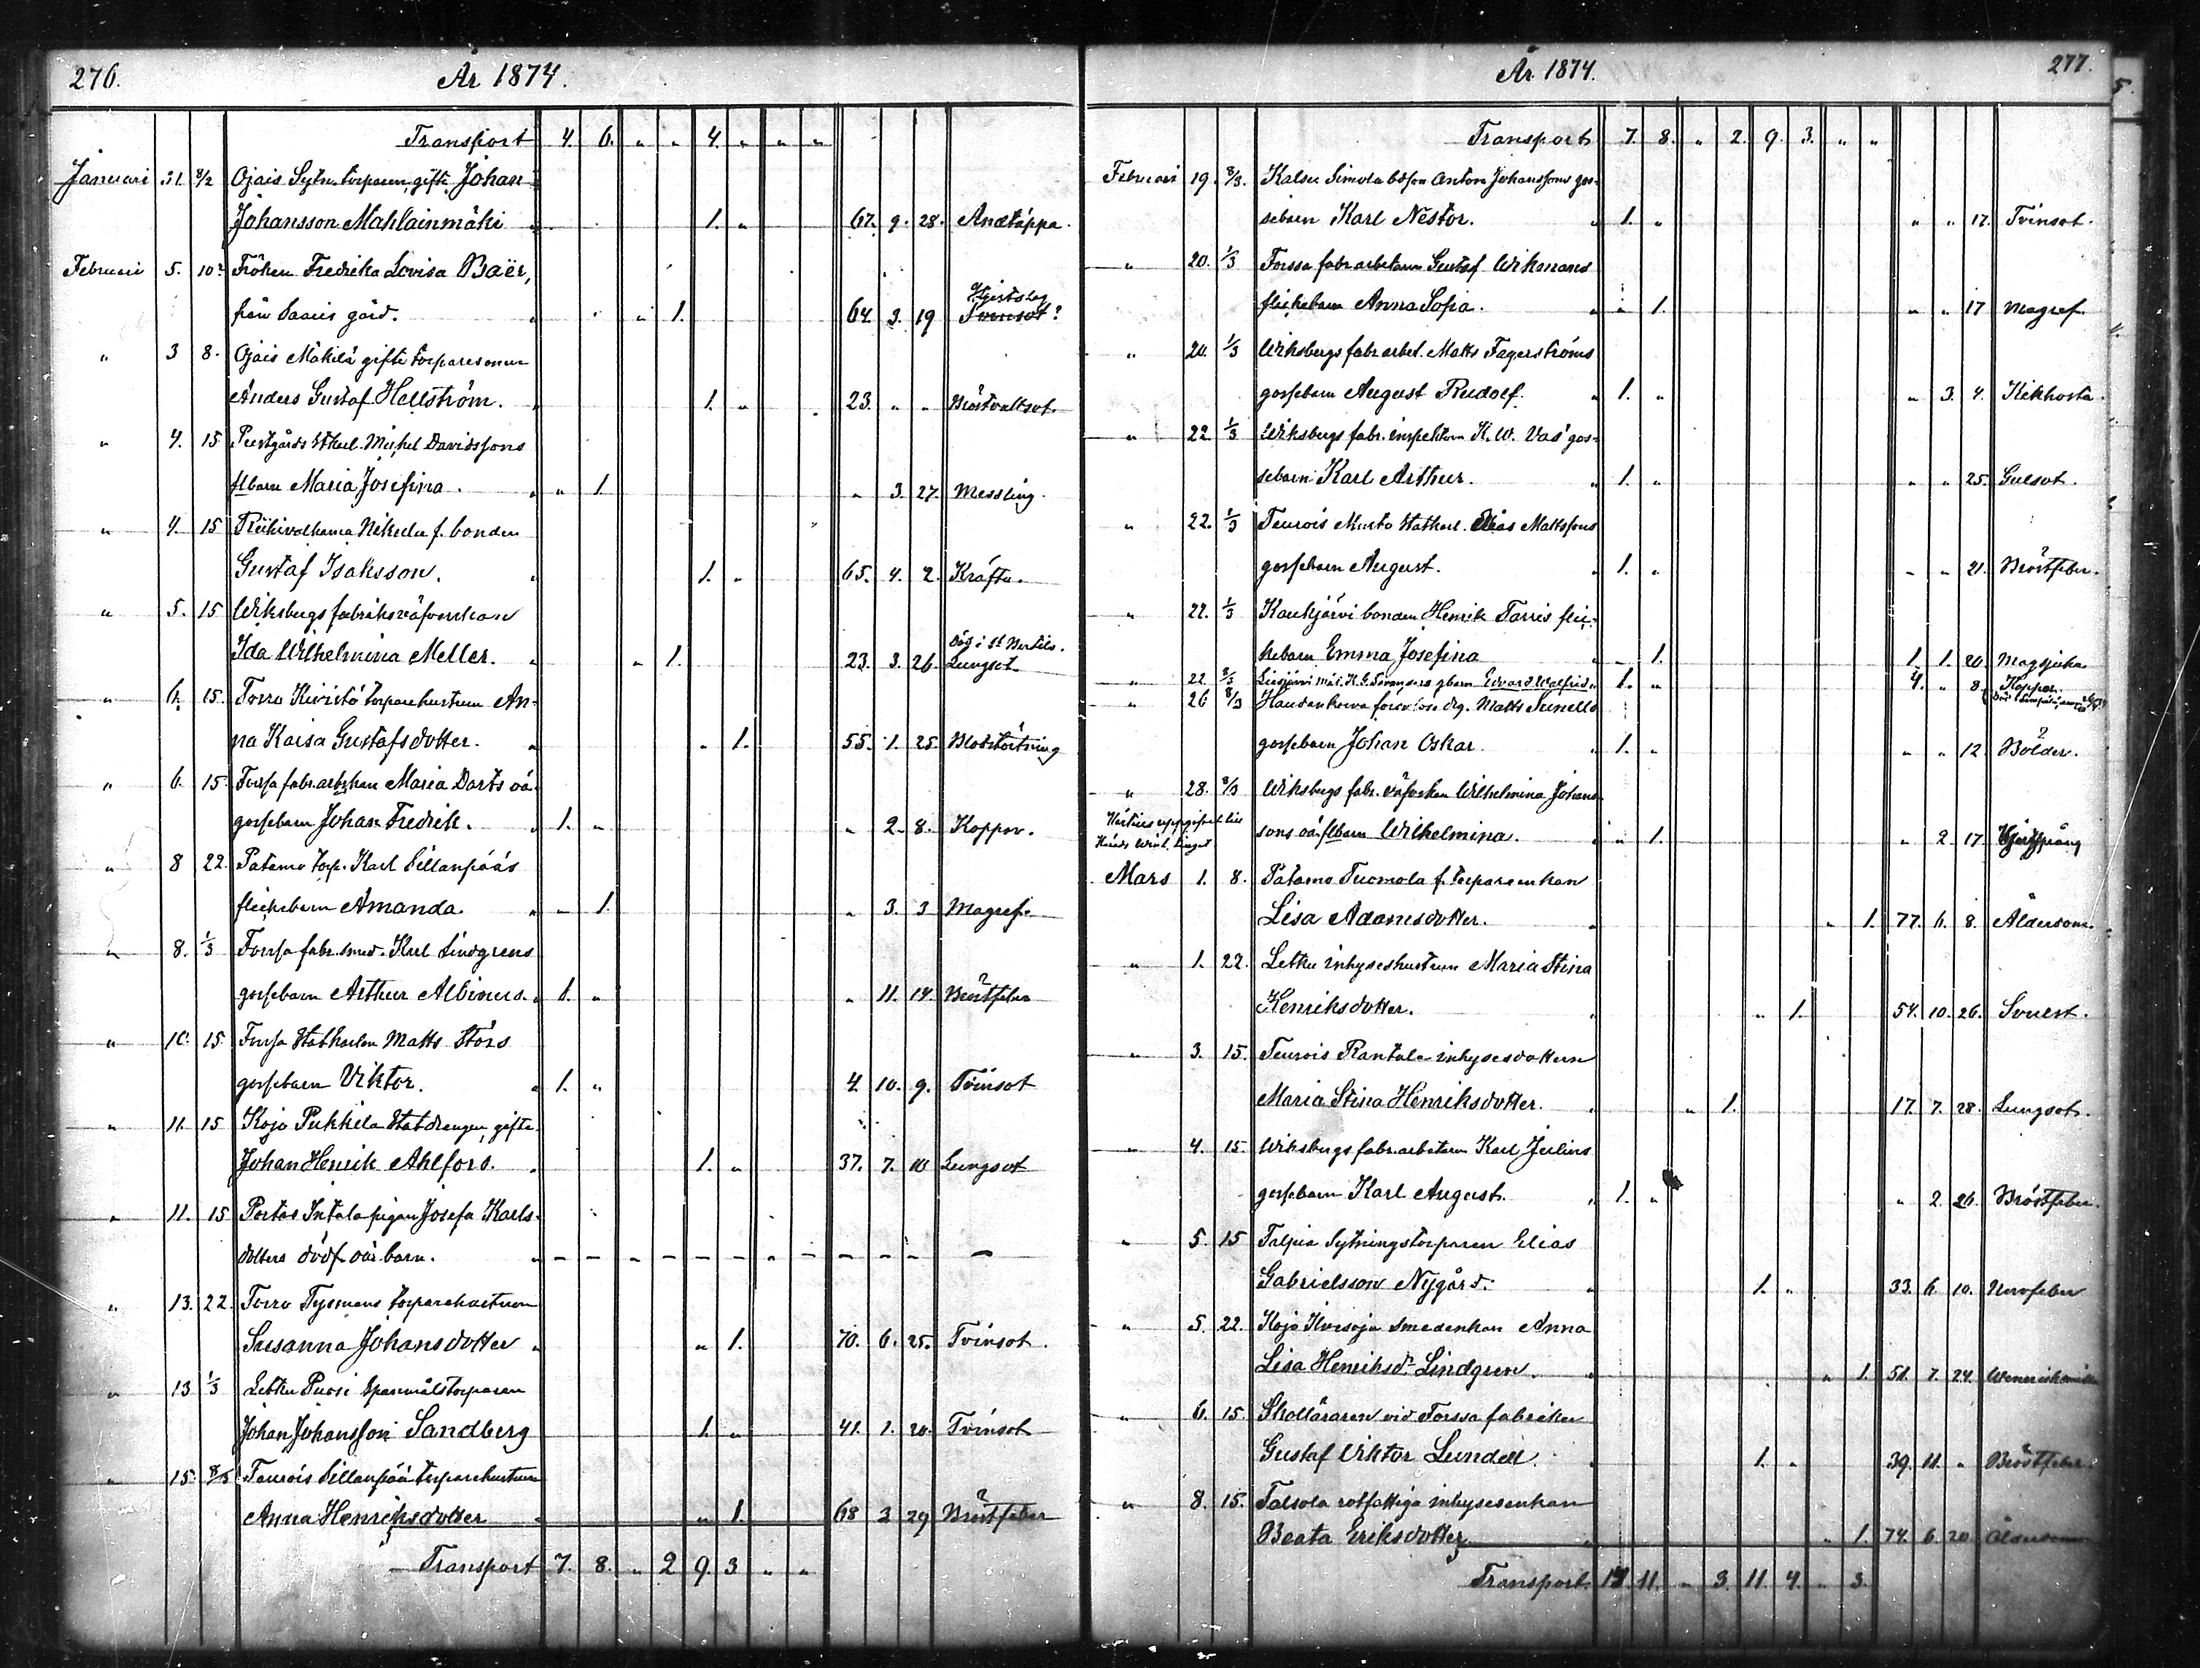 276.
År 1874.
Transport 4. 6. " " 4. " " "
Januari 31. 8/2 Ojais Sytn. torparen, gifte Johan
Johansson Mahlainmäki 1. " 67. 9. 28. Andtäppa.
Februari 5. 10? Fröken Fredrika Lovisa Baër,
från Saaris gård. " 1. 64. 3. 19 Hjertslag
Tvinsot?
" 3 8. Ojais Mäkilä gifte torparesonen
Anders Gustaf Hellström. 1. " 23. " " Bröstvattsot.
" 4. 15 Prestgårds Stkarl Michel Davidssons
flbarn Maria Josefina. " 1. " 3. 27. Messling.
" 4. 15 Riihivalkama Nikula f. bonden
Gustaf Isaksson. 1. " 65. 4. 2. Kräfta.
" 5. 15 Wiksbergs fabriksväfverskan
Ida Wilhelmina Meller. " 1. 23. 3. 26. Lungsot
" 6. 15. Torro Kivistö torparehustrun An-
na Kaisa Gustafsdotter. " 1. 55. 1. 25. Blodstörtning
" 6. 15. Forssa fabr. arbskan Maria Darts oä.
gossebarn Johan Fredrik. 1. " " 2. 8. Koppor.
" 8 22. Patamo torp. Karl Sillanpääs
flickebarn Amanda. " 1. " 3. 3 Magref.
" 8. 1/3 Forssa fabr. smed. Karl Lindgrens
gossebarn Arthur Albinus. 1. " " 11. 14. Bröstfeber
" 10. 15. Forssa Statkarlen Matts Störs
gossebarn Viktor. 1. " 4. 10. 9. Tvinsot
" 11. 15 Kojo Pukkila Statdrengen, gifte
Johan Henrik Ahlfors. 1. " 37. 7. 10 Lungsot
" 11. 15 Portas Intala pigan Josefa Karls-
dotters dödf. oä. barn. " - - - - - - - - - - - -
" 13. 22. Torro Tysmens torparehustrun
Susanna Johansdotter " 1. 70. 6. 25. Tvinsot.
" 13 1/3 Letku Puosi Spanmålstorparen
Johan Johansson Sandberg 1. " 41. 1. 20. Tvinsot
" 15. 8/3 Teurois Sillanpää torparehustrun
Anna Henriksdotter " 1. 68 2 29 Bröstfeber
Transport 7. 8. " 2 9. 3 " "
277.
År 1874.
Transport 7. 8. " 2. 9. 3. " "
Februari 19. 8/3. Kalsu Simola bdson Anton Johanssons gos-
sebarn Karl Nestor. 1. " " " 17. Tvinsot.
" 20. 1/3 Forssa fabr. arbetaren Gustaf Wikmans
flickebarn Anna Sofia. " 1. " " 17 Magref.
" 20. 1/3 Wiksbergs fabr. arbet. Matts Fagerströms
gossebarn August Rudolf. 1. " " 3. 4. Kikhosta.
" 22. 1/3 Wiksbergs fabr. inspektorn K. W. Vas' gos-
sebarn Karl Arthur. 1. " " " 25. Gulsot.
" 22. 1/3 Teurois Musto Statkarl. Elias Mattssons
gossebarn August. 1. " " " 21. Bröstfeber.
" 22. 1/3 Kaukjärvi bonden Henrik Tarris flic-
kebarn Emma Josefina " 1. 1. 1. 20. Magsjuka
" 22 gbarn Edvard Walfrid 1. " 4. " 8. Koppor.
" 26 8/3 Haudankorva Matts Sunells
gossebarn Johan Oskar. 1. " " " 12 Bölder.
" 28. 8/3 Wiksbergs fabr. väfverskan Wilhelmina Johans-
sons oä. flbarn Wilhelmina. " 1. " 2. 17.
Mars 1. 8. Patamo Tuomola f. torpareenkan
Lisa Adamsdotter. " 1. 77. 6. 8. Ålderdom.
" 1. 22. Letku inhyseshustrun Maria Stina
Henriksdotter. " 1. 54. 10. 26. Svulst.
" 3. 15. Teurois Rantala inhysesdottern
Maria Stina Henriksdotter. " 1. 17. 7. 28. Lungsot.
" 4. 15. Wiksbergs fabr. arbetaren Karl Julins
gossebarn Karl August. 1. " " 2. 26. Bröstfeber.
" 5. 15 Talpia Sytningstorparen Elias
Gabrielsson Nygård. 1. " 33. 6. 10. Nervfeber
" 5. 22. Kojo Ilvesoja Smedenkan Anna
Lisa Henriksdr Lindgren. " 1. 51. 7. 24.
" 6. 15. Skolläraren vid Forssa fabriker
Gustaf Viktor Lundell. 1. " 39. 11. " Bröstfeber
" 8. 15. Talsola rotfattiga inhysesenkan
Beata Eriksdotter " 1. 74. 6. 20 Ålderdom.
Transport. 11. " 3. 11. 4. " 3.